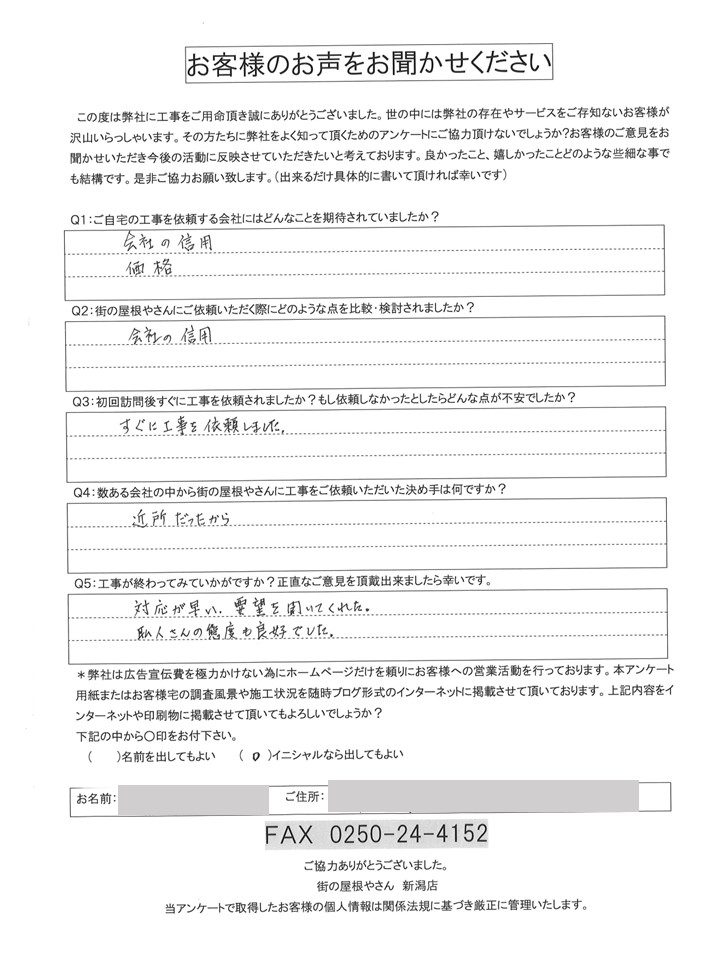 お客様のお声をお聞かせください
この度は弊社に工事をご用命頂き誠にありがとうございました。世の中には弊社の存在やサービスをご存知ないお客様が
沢山いらっしゃいます。その方たちに弊社をよく知って頂くためのアンケートにご協力頂けないでしょうか?お客様のご意見をお
聞かせいただき今後の活動に反映させていただきたいと考えております。良かったこと、嬉しかったことどのような些細な事で
も結構です。是非ご協力お願い致します。(出来るだけ具体的に書いて頂ければ幸いです)
Q1:ご自宅の工事を依頼する会社にはどんなことを期待されていましたか?
会社の信用
価格
Q2:街の屋根やさんにご依頼いただく際にどのような点を比較・検討されましたか?
会社の信用
Q3:初回訪問後すぐに工事を依頼されましたか?もし依頼しなかったとしたらどんな点が不安でしたか?
すぐに工事を依頼しました。
Q4:数ある会社の中から街の屋根やさんに工事をご依頼いただいた決め手は何ですか?
近所だったから
Q5:工事が終わってみていかがですか?正直なご意見を頂戴出来ましたら幸いです。
対応が早い、要望を聞いてくれた。
職人さんの態度も良好でした。
*弊社は広告宣伝費を極力かけない為にホームページだけを頼りにお客様への営業活動を行っております。本アンケート
用紙またはお客様宅の調査風景や施工状況を随時ブログ形式のインターネットに掲載させて頂いております。上記内容をイ
ンターネットや印刷物に掲載させて頂いてもよろしいでしょうか?
下記の中から〇印をお付下さい。
( )名前を出してもよい (〇)イニシャルなら出してもよい
お名前: ご住所:
FAX 0250-24-4152
ご協力ありがとうございました。
街の屋根やさん 新潟店
当アンケートで取得したお客様の個人情報は関係法規に基づき厳正に管理いたします。